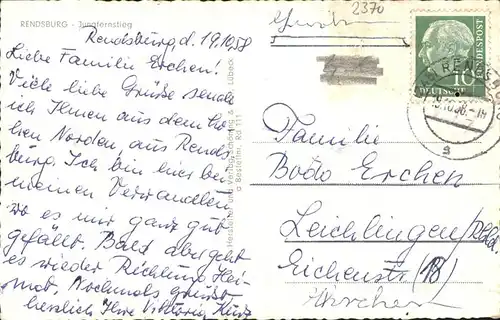 RENDSBURG - Jungfernstieg
2370
Rendsburg d. 19.10.58
Liebe Familie Erchen!
Viele liebe Grüße sende
ich Ihnen aus dem ho-
hen Norden, aus Rends-
burg. Ich bin hier bei
meinen Verwandten
wo es mir ganz gut
gefällt. Bald aber geht
es wieder Richtung Hei-
mat. Nochmals grüßt
herzlich Ihre Viktoria
Hersteller und Verlag Schöning & Lübeck
Bestellnr. Rd 111
DEUTSCHE BUNDESPOST
10
RENDSBURG
Familie
Bodo Erchen
Leichlingen/Rhld.
Eichenstr. 18